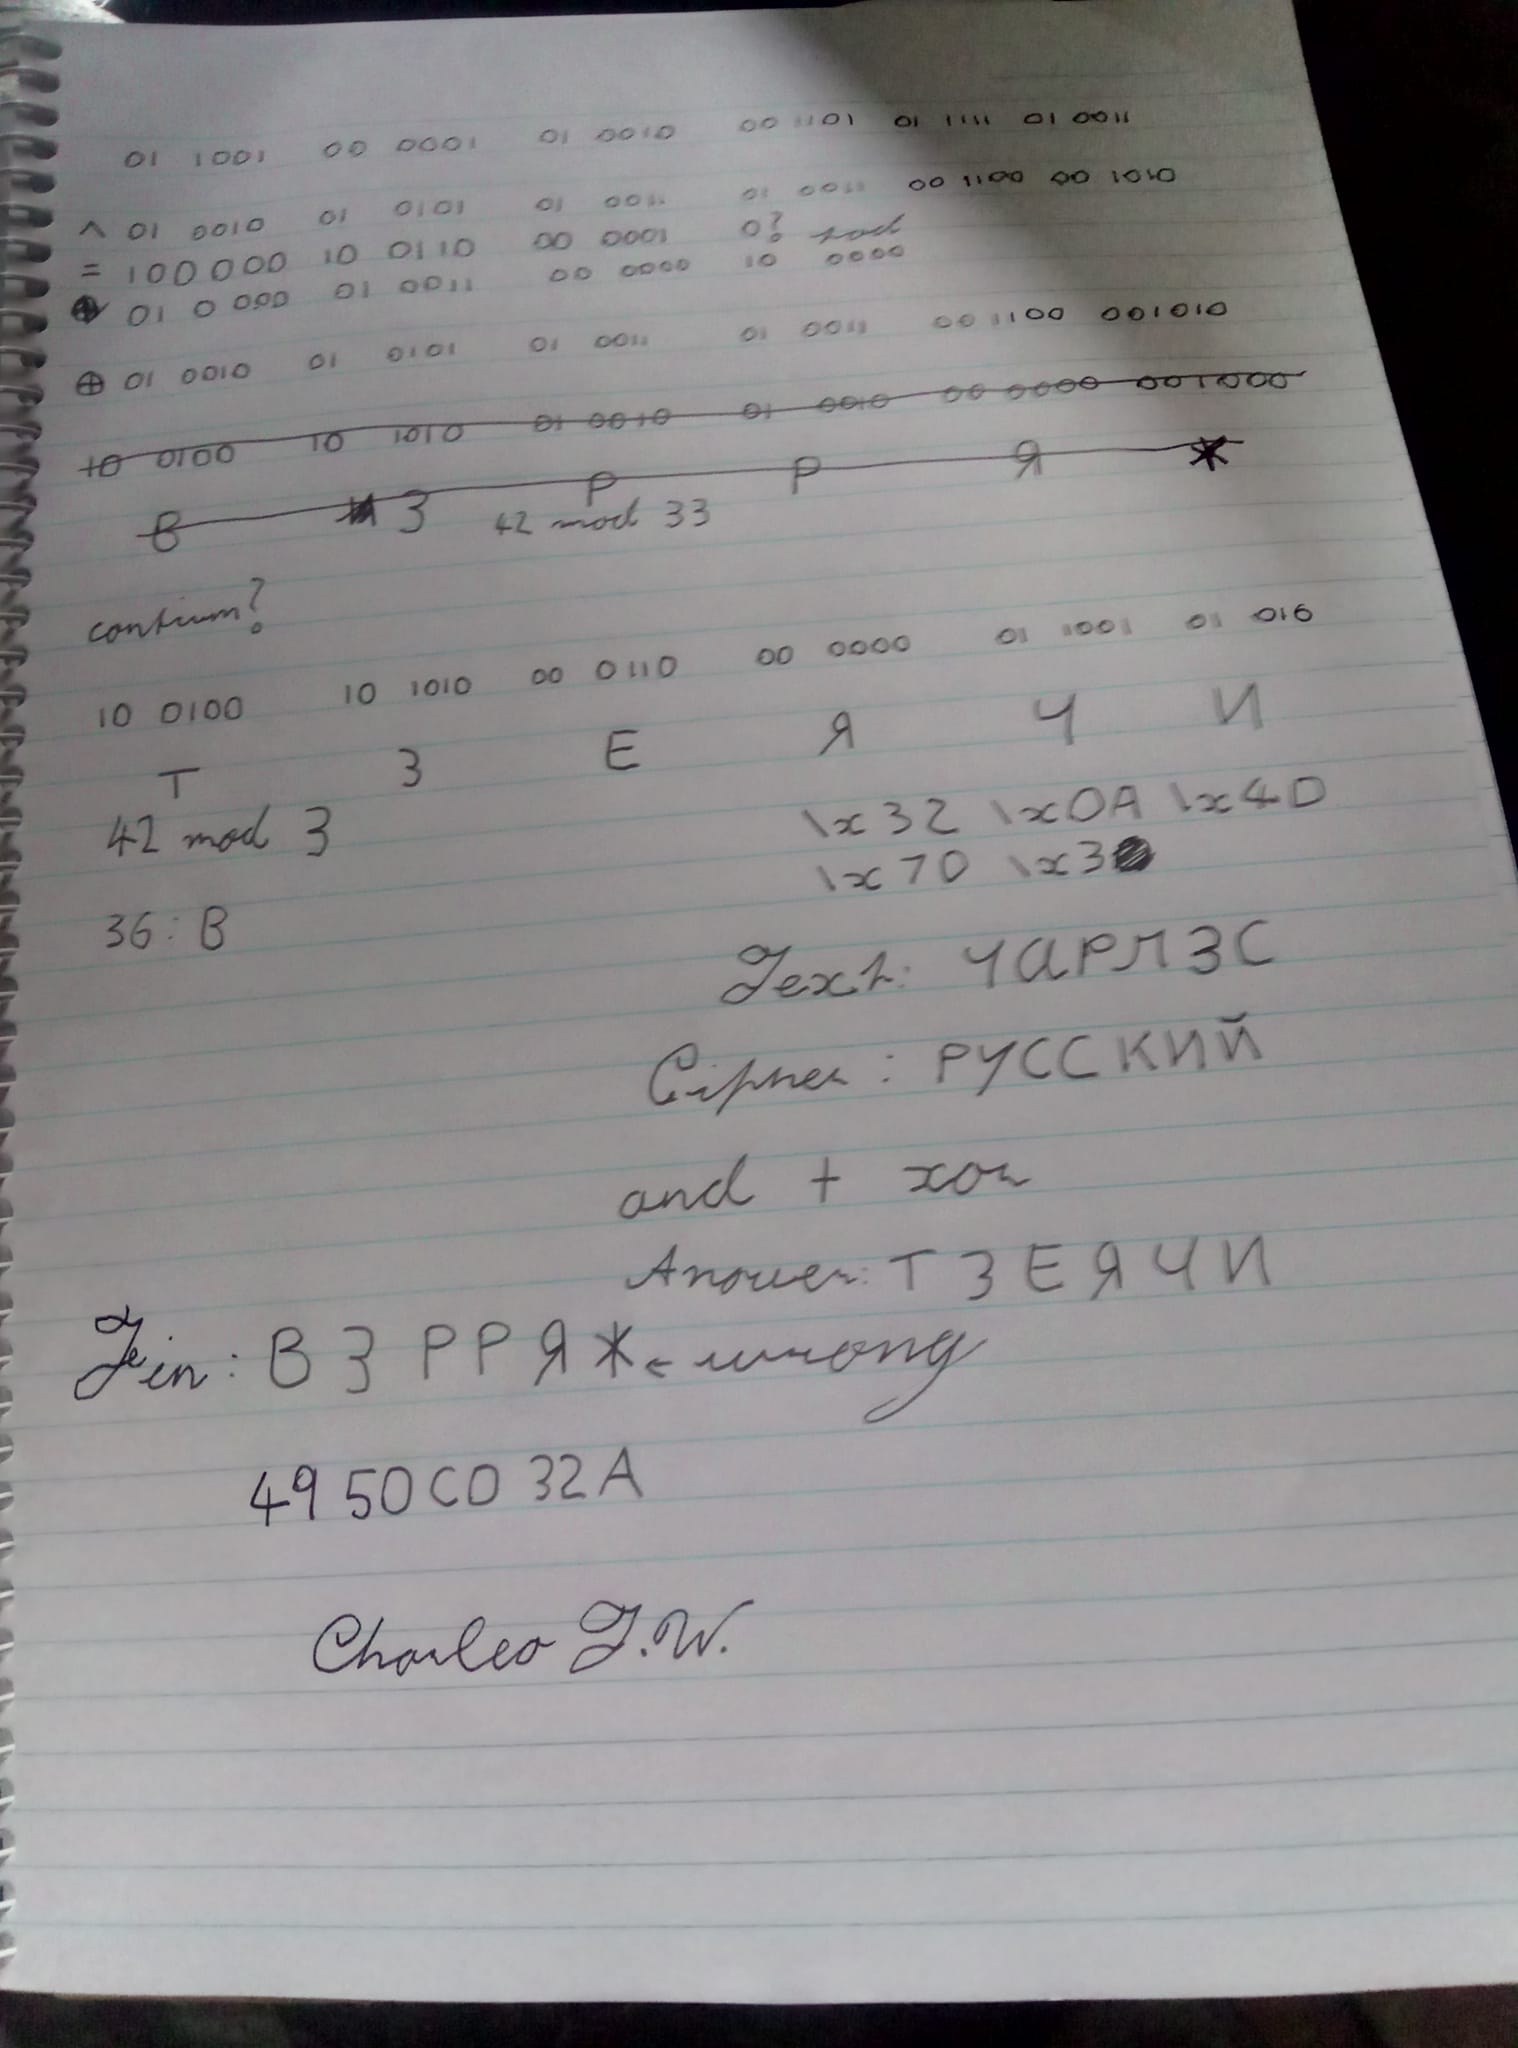 01 1001 00 0001 01 0010 00 1101 01 1111 01 0011
^ 01 0010 01 0101 01 0011 01 0011 00 1100 00 1010
= 100000 10 0110 00 0001 0?
⊕ 01 0000 01 0011 00 0000 10 0000
⊕ 01 0010 01 0101 01 0011 01 0011 00 1100 001010
10 0100 10 1010 01 0010 01 0010 00 0000 001000
В З Р Р Я Ж
42 mod 33
contium?
10 0100 10 1010 00 0110 00 0000 01 1001 01 010
Т З Е Я Ч И
42 mod 3
\x32 \x0A \x4D
\x70 \x3
36: В
Text: ЧАРЛЗС
Cipher: РУССКИЙ
and + xor
Answer: ТЗЕЯЧИ
Fin: ВЗРРЯЖ ← wrong
4950CD32A
Charles J.W.